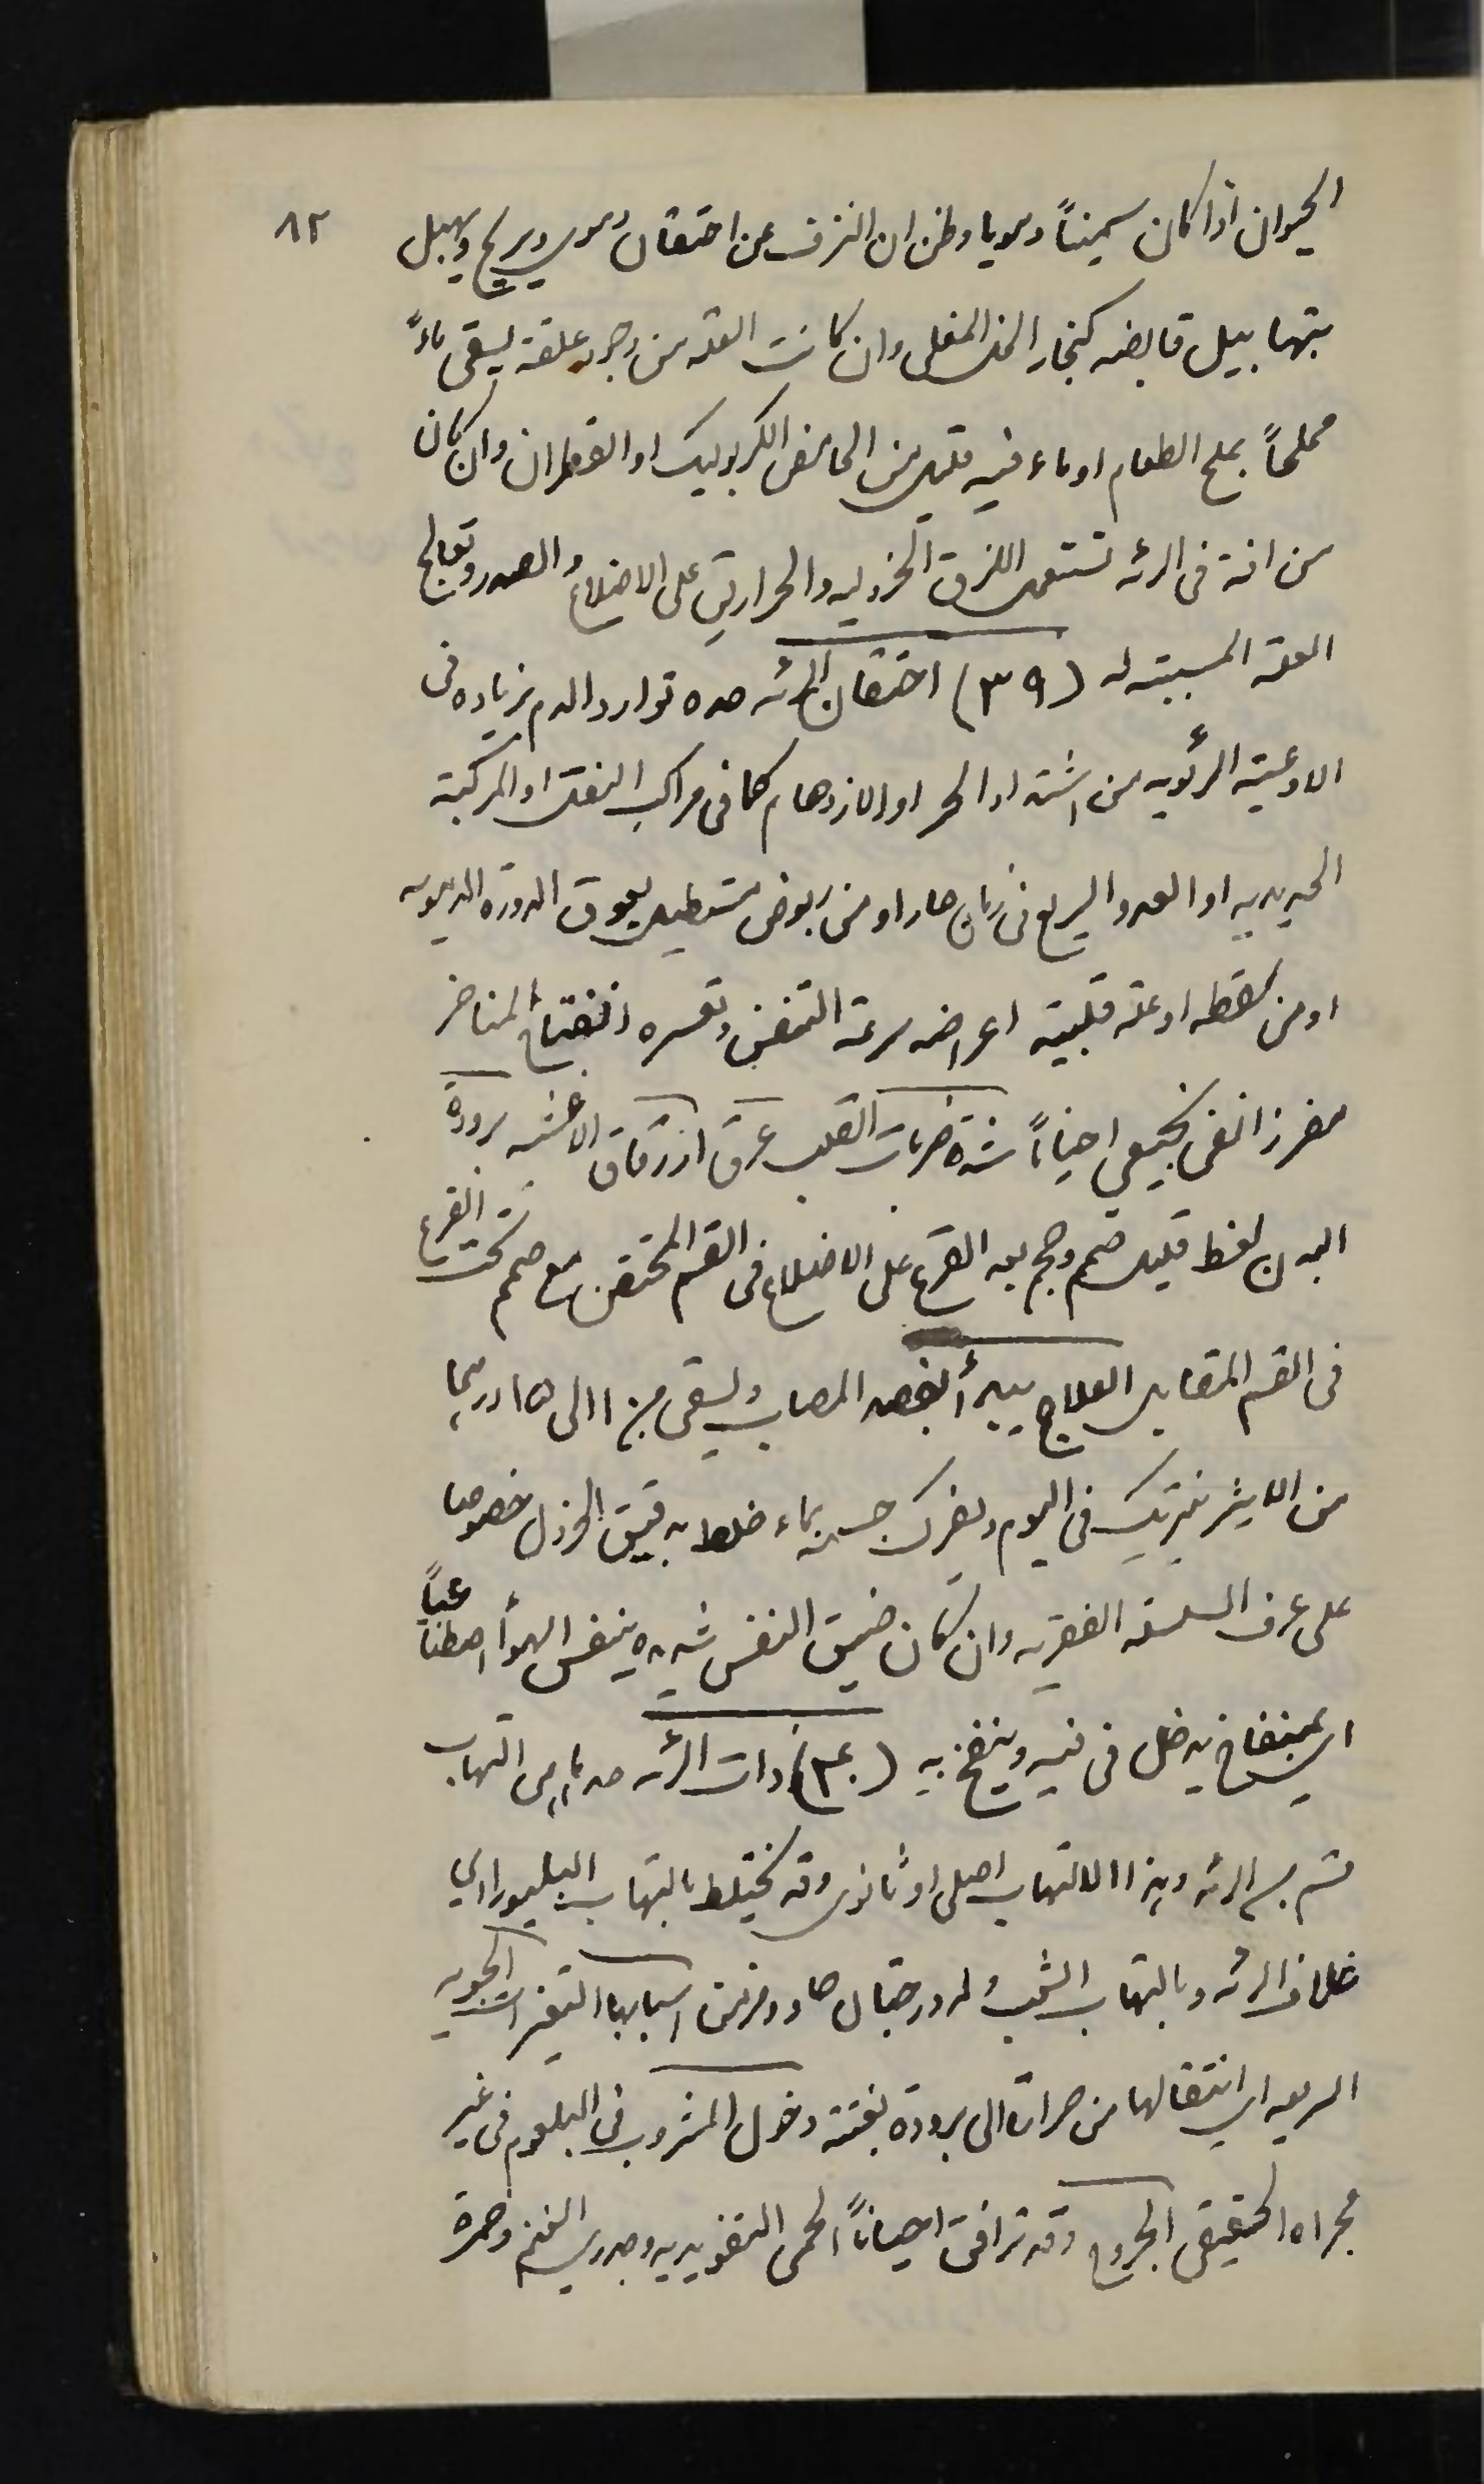 ٨٢
الحيوان اذا كان سميناً دمويا وظن ان النزف عن احتقان دموي ويريح ويهبل
بتهابيل قابضه كبخار الخل المغلى وان كانت العله من وجود علقة يسقى ماءً
مملحاً بملح الطعام او ماء فيه قليل من الحامض الكربوليك او القطران وان كان
من افة فى الرئه تستعمل اللزق الخردليه والحراريق على الاضلاع والصدر وتعالج
العله المسببة له (٣٩) احتقان الرئه حده توارد الدم بزياده فى
الاوعية الرئويه من اشتداد الحر او الازدحام كما فى مراكب النقل او المركبة
الحديديه او العدو السريع فى زمان حار او من ربوض مستطيل يعوق الدورة الدمويه
او من سقطه او علة قلبية اعراضه سرعة التنفس وتعسره انفتاح المناخر
مفرز انفى نجيعي احياناً شدة ضربات القلب عرق ازرقاق الاغشيه برودة
البدن لغط قليل صمم وجم بعد القرع على الاضلاع فى القسم المحتقن مع صمم تحت القرع
فى القسم المقابل العلاج يبدأ بفصد المصاب ويسقى من ١٠ الى ١٥ درهما
من الايثر نيتريك فى اليوم ويفرك جسده بماء خلط بدقيق الخردل خصوصا
على عرف السلسله الفقريه وان كان ضيق النفس شديده ينفس الهوأ اصطناعياً
اي بمنفاخ يدخل فى فيه وينفخ به (٤٠) ذات الرئه حدها هى التهاب
قسم بسم الرئه وهذا الالتهاب اصلى او ثانوى وقد تختلط بالتهاب البليورا اي
غلاف الرئه وبالتهاب الشعب وله درجتان حاد ومزمن اسبابها التغيرات الجويه
السريعه اي انتقالها من حرارة الى برودة بغتة دخول المشروب فى البلعوم فى غير
مجراه الحقيقى الجروح وقد ترافق احياناً الحمى التيفويديه وجدري الغنم وحمرة